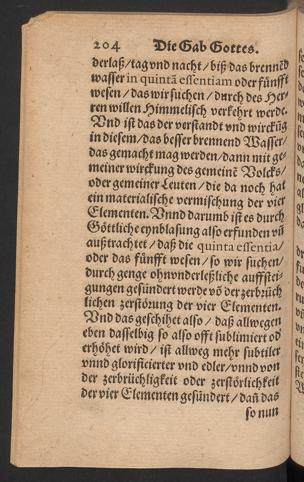 204 Die Gab Gottes.
derlaß/tag vnd nacht/biß das brennēd
wasser in quintā essentiam oder fünfft
wesen/das wir suchen/durch des Her-
ren willen Himmelisch verkehrt werde.
Vnd ist das der verstandt vnd wirckūg
in diesem/das besser brennend Wasser/
das gemacht mag werden/dann mit ge-
meiner wirckung des gemeinē Volcks/
oder gemeiner Leuten/die da noch hat
ein materialische vermischung der vier
Elementen. Vnnd darumb ist es durch
Göttliche eynblasung also erfunden vñ
außtrachtet/daß die quinta essentia/
oder das fünfft wesen/so wir suchen/
durch genge ohnvnderleßliche auffstei-
gungen gesündert werde võ der zerbrüch
lichen zerstörung der vier Elementen.
Vnd das geschihet also/daß allwegen
eben dasselbig so also offt sublimiert od
erhöhet wird/ist allweg mehr subtiler
vnnd glorificierter vnd edler/vnnd von
der zerbrüchligkeit oder zerstörlichkeit
der vier Elementen gesündert/dañ das
so nun